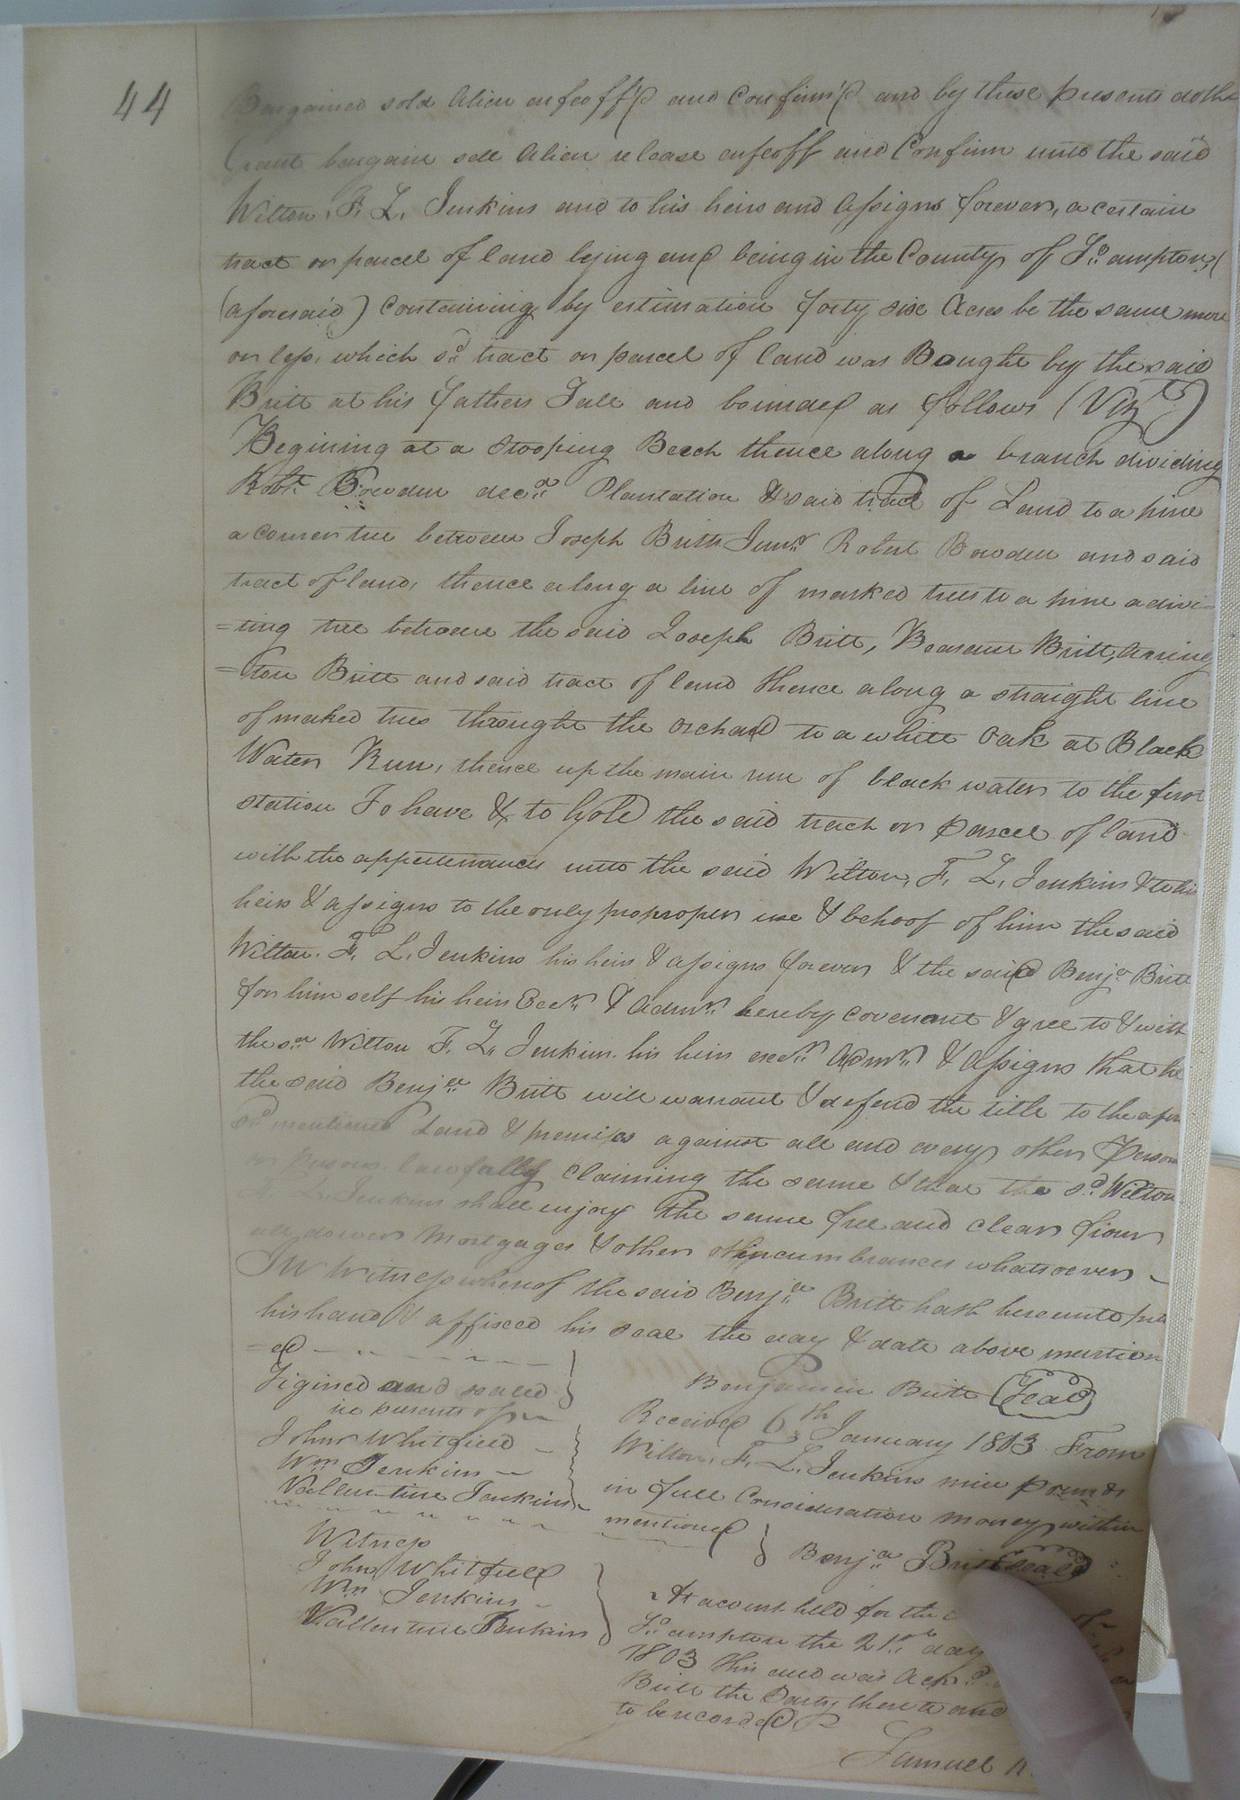 44
Bargained sold Alien enfeoff'd and Confirm'd and by these presents doth
Grant bargain sell Alien release enfeoff and Confirm unto the said
Wilton. F. L. Jenkins and to his heirs and Assigns forever, a certain
tract or parcel of land lying and being in the County of So.ampton,
(aforesaid) Containing by estimation forty six Acres be the same more
or less, which sd. tract or parcel of land was Bought by the said
Britt at his fathers Sale and bounded as follows (Vizt.)
Begining at a stooping Beech thence along a branch dividing
Robt. Bowden decd. Plantation & said tract of Land to a pine
a corner tree between Joseph Britt Junr. Robert Bowden and said
tract of land, thence along a line of marked trees to a pine a divi-
=ting tree between the said Joseph Britt, Britt, Arring
=ton Britt and said tract of land thence along a straight line
of maked trees throught the orchard to a white oak at Black
Water Run, thence up the main run of black water to the first
station To have & to hold the said trach or parcel of land
with the appertenances unto the said Wilton, F. L. Jenkins & to his
heirs & assigns to the only proproper use & behoof of him the said
Wilton. F. L. Jenkins his heirs & assigns forever & the said Benja. Britt
for him self his heirs Exrs. & Admrs. hereby covenant & gree to & with
the sd. Wilton F. L. Jenkins his heirs Admrs. & Assigns that he
the said Benja. Britt will warrant & defend the title to the afore
sd. mentioned Land & premises against all and every other Person
or persons lawfully claiming the same & that the sd. Wilton
F. L. Jenkins shall enjoy the same free and clear from
all dowers Mortgages & other incumbrances whatsoever ~
IN Witness whereof the said Benja. Britt hath hereunto
his hand & affixed his seal the day & date above mention
=ed
Signed and sealed
in presents of
John Whitfield
Wm Jenkins
Vallentine Jenkins
Benjamin Britt (Seal)
Received 6th January 1803 From
Wilton. F. L. Jenkins nine pounds
in full Consideration money within
mentioned
Benja Britt (Seal)
Witness
John Whitfield
Wm Jenkins
Vallentine Jenkins
At a court held for the
So.ampton the 21st day
1803 This was Ackd.
Britt the Party thereto and
to be recorded
Samuel